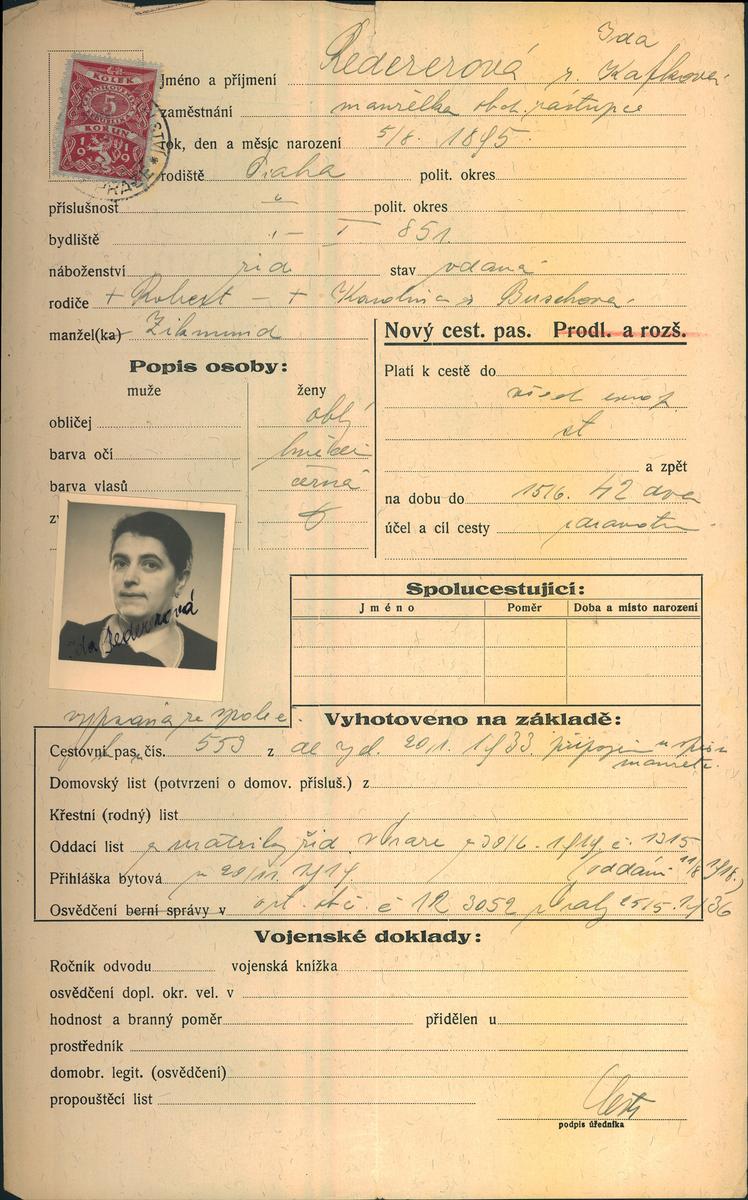 KOLEK
ČESKOSLOVENSKÁ
REPUBLIKA
5
KORUN
1919
PRAZE
Ida
Jméno a příjmení Redererová r. Kafková
zaměstnání manželka obch. zástupce
rok, den a měsíc narození 5/8. 1895.
rodiště Praha polit. okres
příslušnost " polit. okres
bydliště "– I 851.
náboženství žid stav vdaná
rodiče + Robert – + Karolina r. Buschová
manžel(ka) Zikmund
Nový cest. pas. Prodl. a rozš.
Popis osoby:
muže ženy
Platí k cestě do
všech evrop
st
obličej oblý
barva očí hnědé
barva vlasů černá
a zpět
na dobu do 15/6. 42 dva
účel a cíl cesty zdravotn
Ida Redererová
Spolucestující:
Jméno Poměr Doba a místo narození
Vyhotoveno na základě:
Cestovní pas čís. 553 z 20/1. 1933. připojen u spisu
manžela.
Domovský list (potvrzení o domov. přísluš.) z
Křestní (rodný) list
Oddací list z matriky žid. v Praze z 30/6. 1919 č. 1315
(oddáni 11/8 1918.)
Přihláška bytová z 20/11. 1919
Osvědčení berní správy v č. 12 3052 Praha 25/5. 1936
Vojenské doklady:
Ročník odvodu vojenská knížka
osvědčení dopl. okr. vel. v
hodnost a branný poměr přidělen u
prostředník
domobr. legit. (osvědčení)
propouštěcí list
podpis úředníka